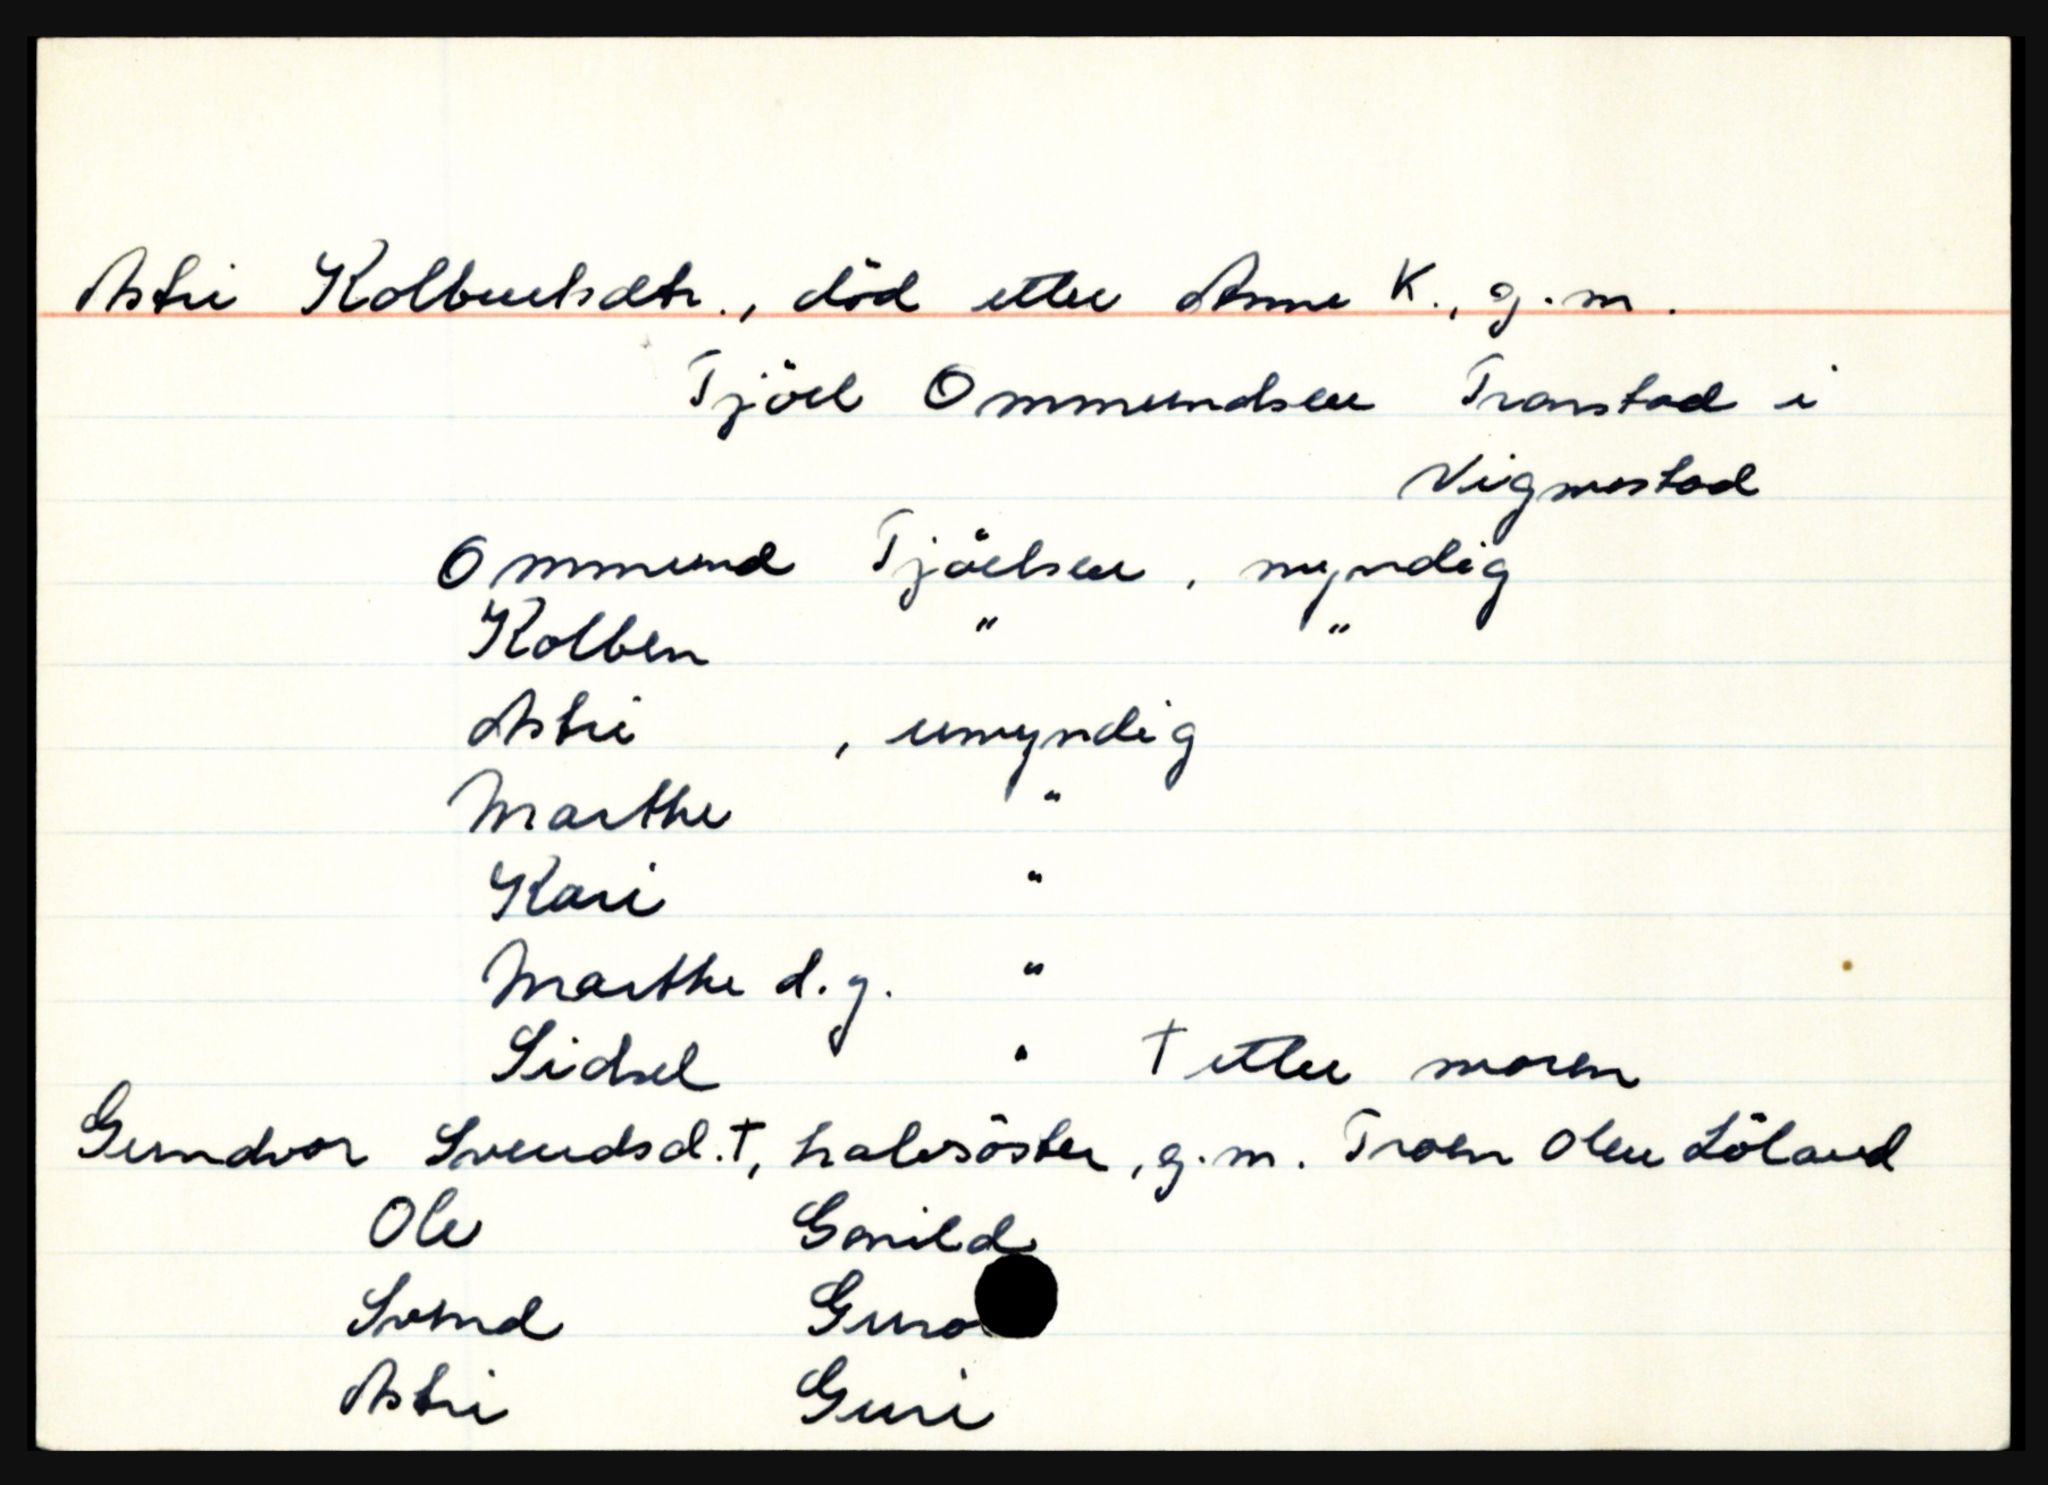 Astri Kolbensdtr., död etter Anne K., g.m.
Tjöel Ommundsen Transtad i
Vigmostad
Ommund Tjöelsen, myndig
Kolben " "
Astri , umyndig
Marthe "
Kari "
Marthe d.y. "
Sidsel " † etter moren
Gundvor Svendsd. †, halvsöster, g.m. Troen Olsen Löland
Ole Gonild
Svend Guro
Astri Guri